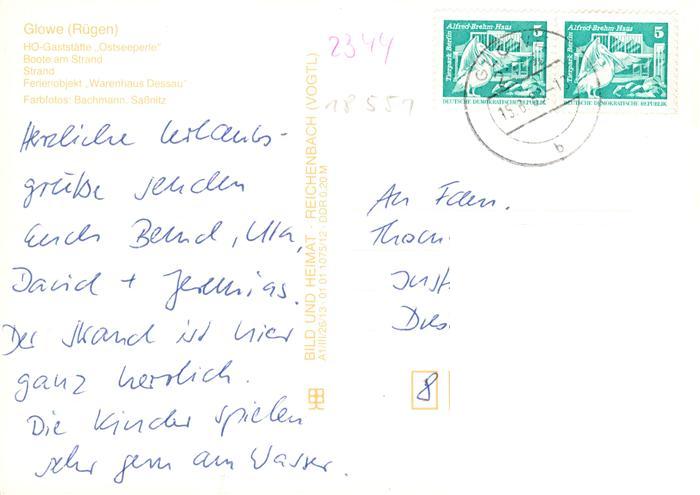 Glowe (Rügen)
HO-Gaststätte „Ostseeperle"
Boote am Strand
Strand
Ferienobjekt „Warenhaus Dessau"
Farbfotos: Bachmann, Saßnitz
Herzliche Urlaubs-
grüße senden
Euch Bernd, Uta,
David + Jeremias.
Der Strand ist hier
ganz herrlich.
Die Kinder spielen
sehr gern am Wasser.
2344
18551
BILD UND HEIMAT · REICHENBACH (VOGTL)
A1/III/26/13 · 01 01 1 075/12 · DDR 0,20 M
Alfred-Brehm-Haus 5
Tierpark Berlin
DEUTSCHE DEMOKRATISCHE REPUBLIK
Alfred-Brehm-Haus 5
Tierpark Berlin
DEUTSCHE DEMOKRATISCHE REPUBLIK
b
An Fam.
8